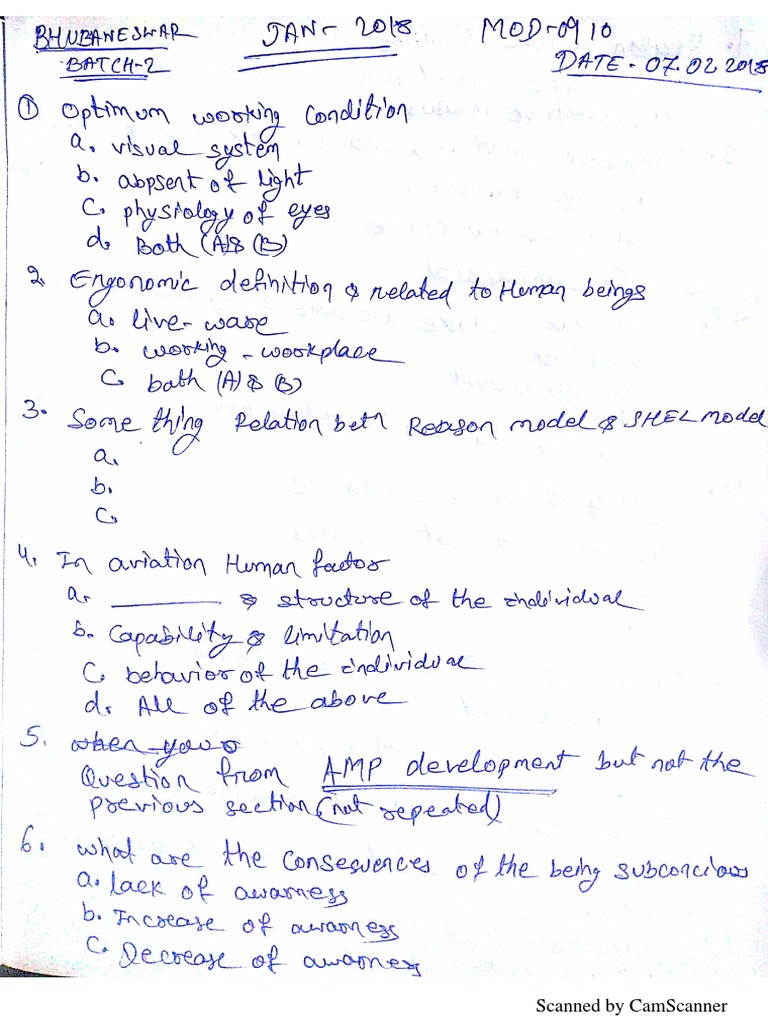 BHUBANESWAR JAN- 2018 MOD-09 10
BATCH-2 DATE- 07.02 2018
① Optimum working condition
a. visual system
b. abpsent of light
c. physiology of eyes
d. Both (A) & (B)
2. Ergonomic definition & related to Human beings
a. live-ware
b. working - workplace
c. both (A) & (B)
3. Some thing Relation betn Reason model & SHEL model
a.
b.
c
4. In aviation Human factor
a. ________ & structure of the individual
b. capability & limitation
c. behavior of the individual
d. All of the above
5. when you
Question from AMP development but not the
previous section (not repeated)
6. what are the consequences of the being subconcious
a. lack of awarness
b. Increase of awarness
c. Decrease of awarness
Scanned by CamScanner